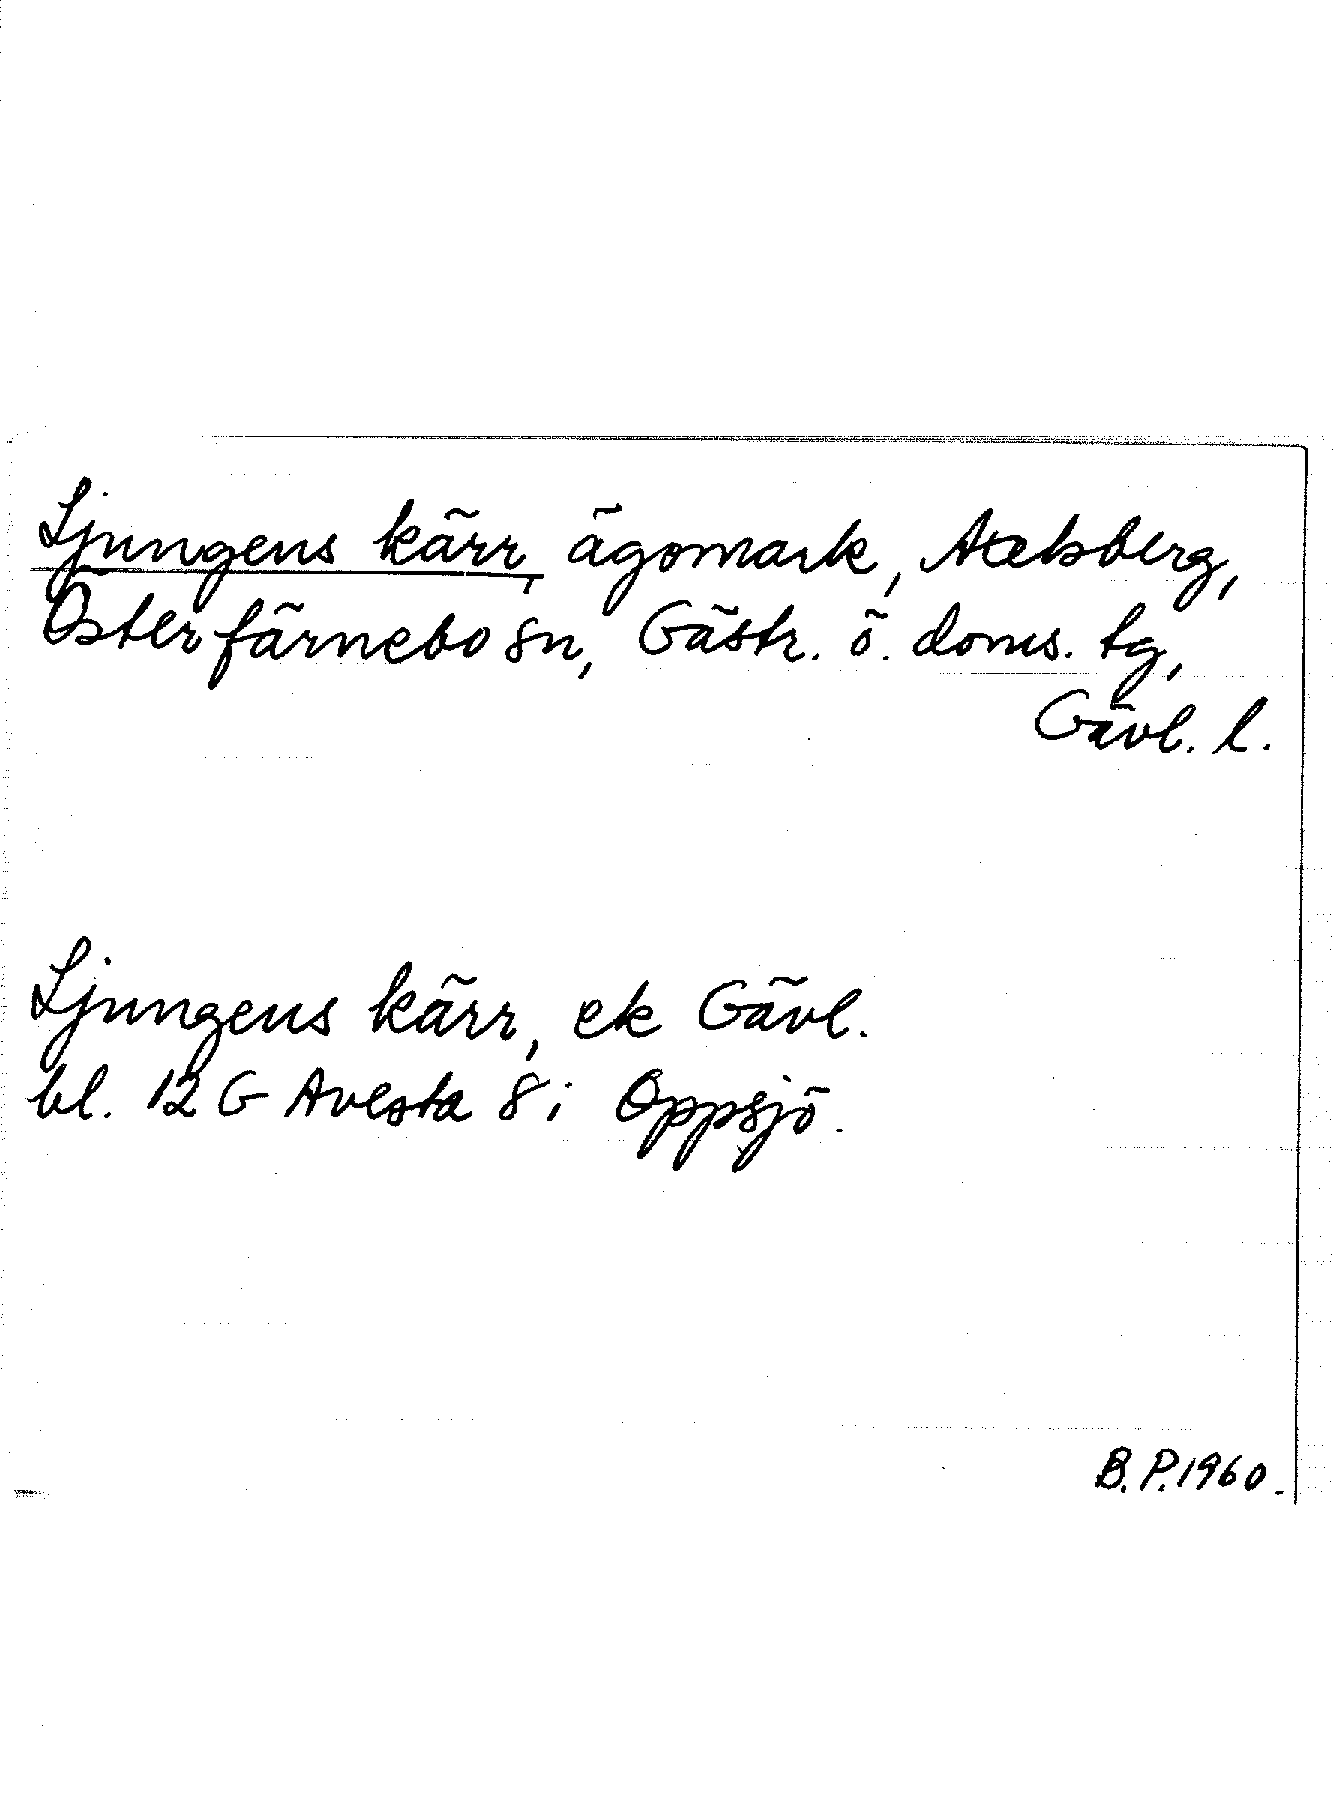 Ljungens kärr, ägomark, Axelsberg,
Österfärnebo sn, Gästr. ö. doms. tg,
Gävl. l.
Ljungens kärr, ek Gävl.
bl. 12 G Avesta 8 i Oppsjö.
B.P.1960.